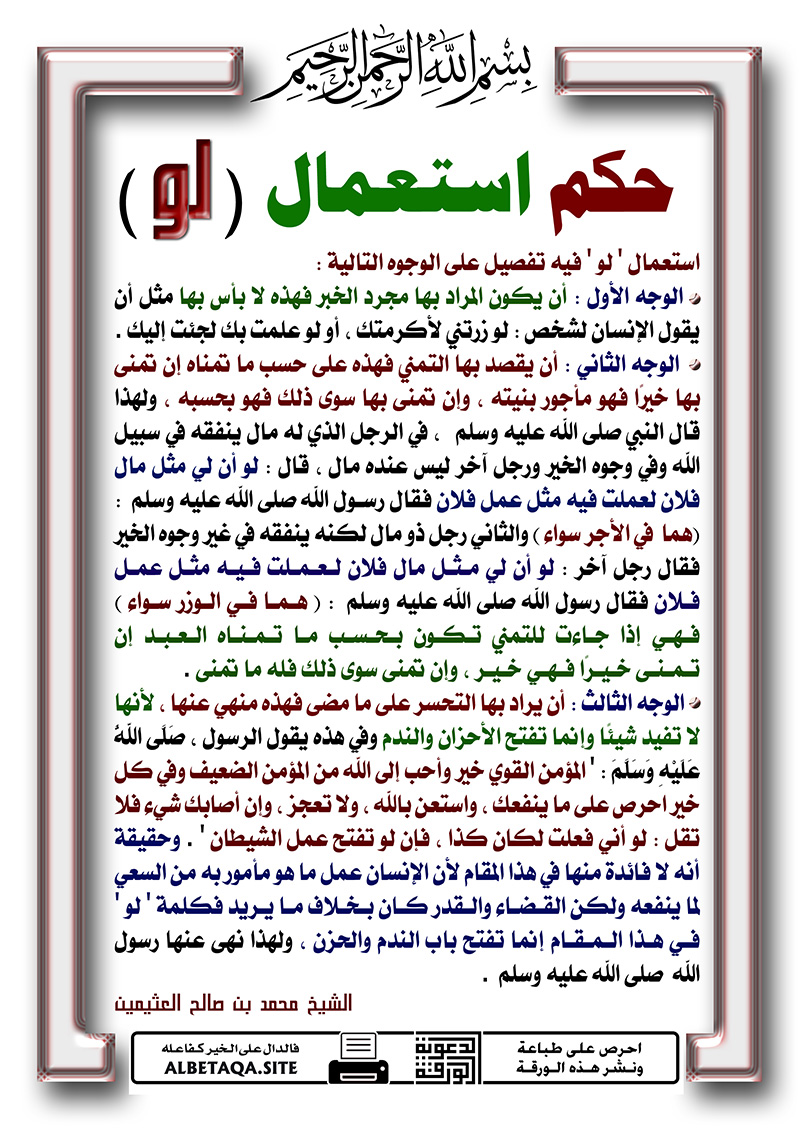 بسم الله الرحمن الرحيم
حكم استعمال ( لو )
استعمال ' لو ' فيه تفصيل على الوجوه التالية :
الوجه الأول : أن يكون المراد بها مجرد الخبر فهذه لا بأس بها مثل أن
يقول الإنسان لشخص : لو زرتني لأكرمتك ، أو لو علمت بك لجئت إليك .
الوجه الثاني : أن يقصد بها التمني فهذه على حسب ما تمناه إن تمنى
بها خيرًا فهو مأجور بنيته ، وإن تمنى بها سوى ذلك فهو بحسبه ، ولهذا
قال النبي صلى الله عليه وسلم ، في الرجل الذي له مال ينفقه في سبيل
الله وفي وجوه الخير ورجل آخر ليس عنده مال ، قال : لو أن لي مثل مال
فلان لعملت فيه مثل عمل فلان فقال رسول الله صلى الله عليه وسلم :
(هما في الأجر سواء ) والثاني رجل ذو مال لكنه ينفقه في غير وجوه الخير
فقال رجل آخر : لو أن لي مثل مال فلان لعملت فيه مثل عمل
فلان فقال رسول الله صلى الله عليه وسلم : ( هما في الوزر سواء )
فهي إذا جاءت للتمني تكون بحسب ما تمناه العبد إن
تمنى خيرًا فهي خير ، وإن تمنى سوى ذلك فله ما تمنى .
الوجه الثالث : أن يراد بها التحسر على ما مضى فهذه منهي عنها ، لأنها
لا تفيد شيئًا وإنما تفتح الأحزان والندم وفي هذه يقول الرسول ، صَلَّى اللهُ
عَلَيْهِ وَسَلَّمَ : ' المؤمن القوي خير وأحب إلى الله من المؤمن الضعيف وفي كل
خير احرص على ما ينفعك ، واستعن بالله ، ولا تعجز ، وإن أصابك شيء فلا
تقل : لو أني فعلت لكان كذا ، فإن لو تفتح عمل الشيطان ' . وحقيقة
أنه لا فائدة منها في هذا المقام لأن الإنسان عمل ما هو مأمور به من السعي
لما ينفعه ولكن القضاء والقدر كان بخلاف ما يريد فكلمة ' لو '
في هذا المقام إنما تفتح باب الندم والحزن ، ولهذا نهى عنها رسول
الله صلى الله عليه وسلم .
الشيخ محمد بن صالح العثيمين
احرص على طباعة
ونشر هذه الورقة
الورقة الدعوية
فالدال على الخير كفاعله
ALBETAQA.SITE